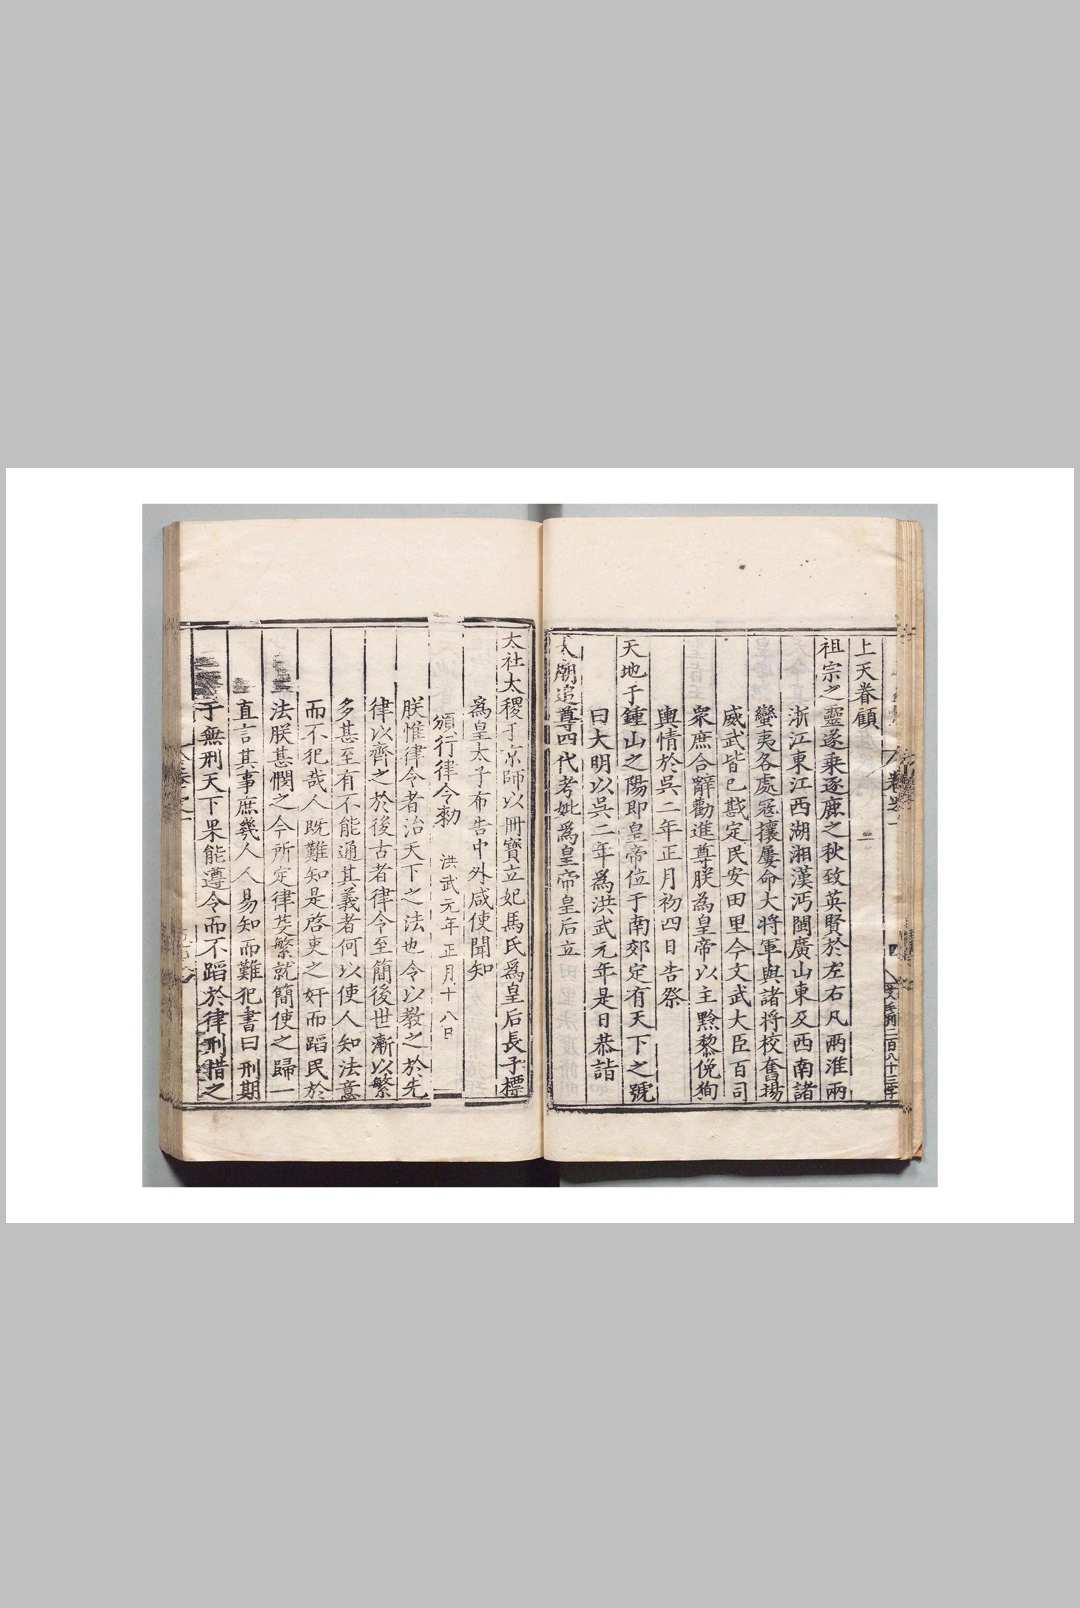 上天眷顧
祖宗之靈遂乘逐鹿之秋致英賢於左右凡兩淮兩
浙江東江西湖湘漢沔閩廣山東及西南諸
蠻夷各處寇攘屢命大將軍與諸將校奮揚
威武皆已戡定民安田里今文武大臣百司
衆庶合辭勸進尊朕為皇帝以主黔黎俛狥
輿情於吳二年正月初四日告祭
天地于鍾山之陽即皇帝位于南郊定有天下之號
曰大明以吳二年為洪武元年是日恭詣
太廟追尊四代考妣爲皇帝皇后立
太社太稷于京師以冊寶立妃馬氏爲皇后長子標
爲皇太子布告中外咸使聞知
頒行律令勑 洪武元年正月十八日
朕惟律令者治天下之法也令以教之於先
律以齊之於後古者律令至簡後世漸以繁
多甚至有不能通其義者何以使人知法意
而不犯哉人既難知是啓吏之奸而蹈民於
法朕甚憫之今所定律芟繁就簡使之歸一
直言其事庶幾人人易知而難犯書曰刑期
于無刑天下果能遵令而不蹈於律刑措之